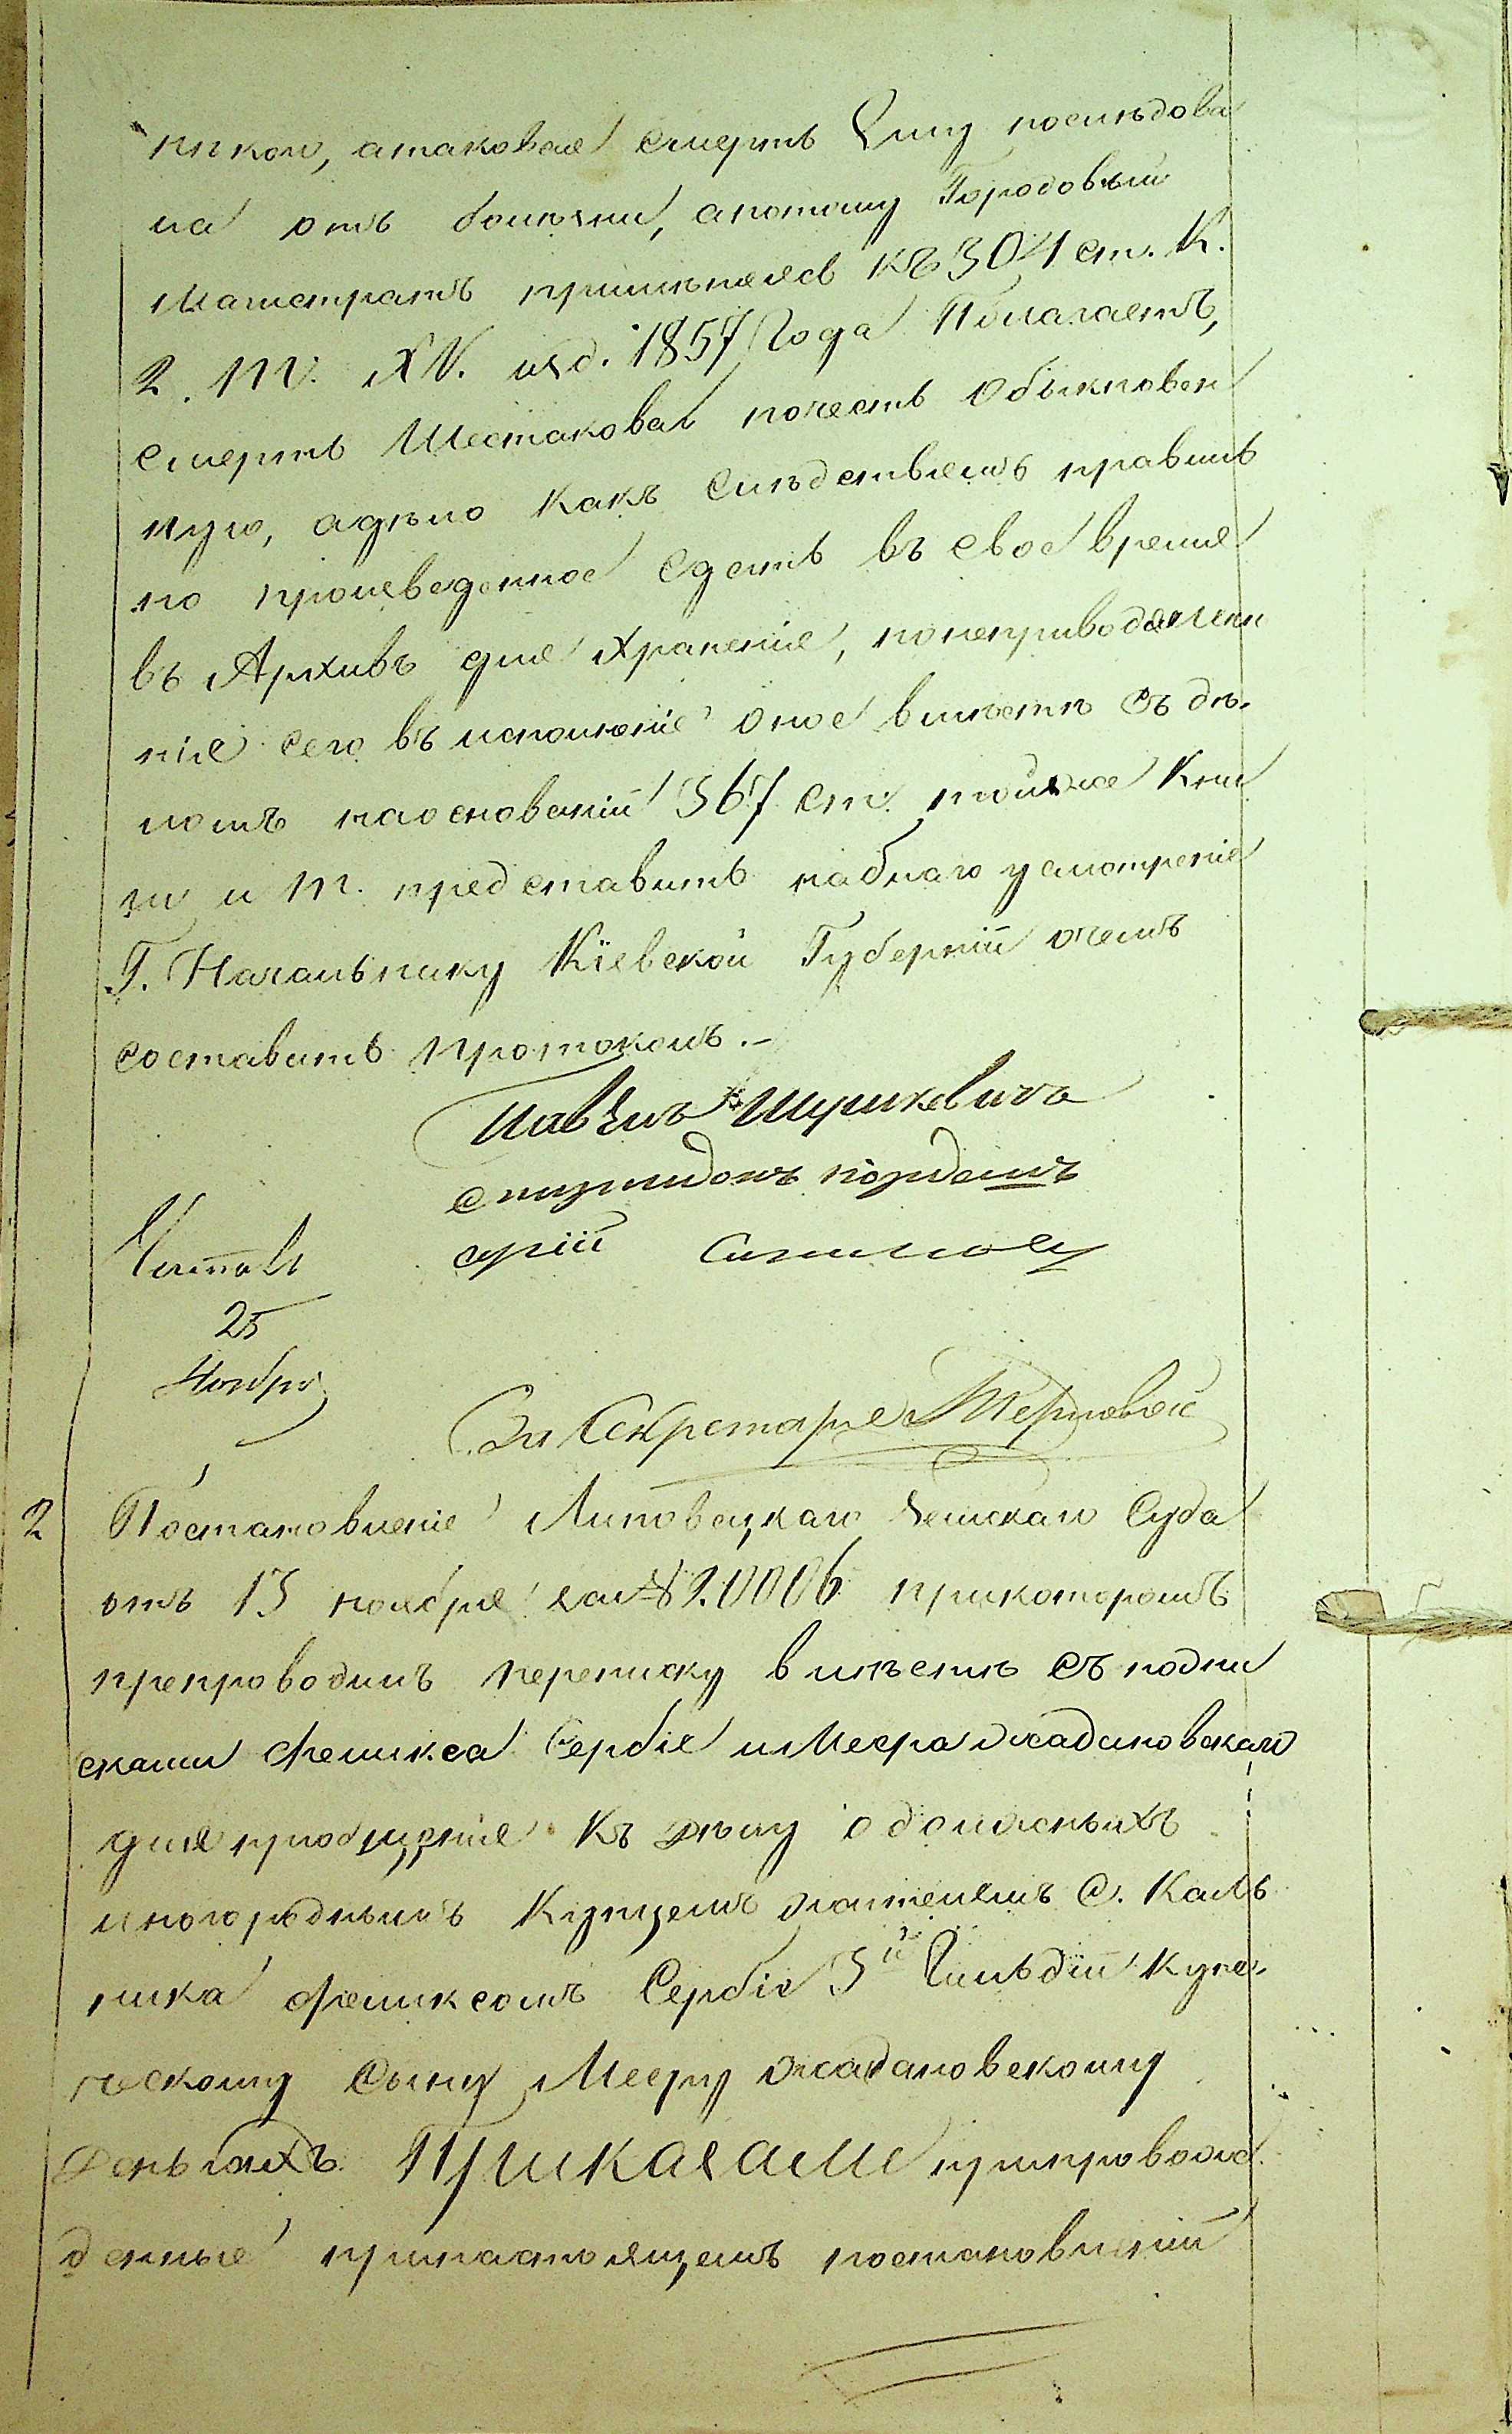 никои, атаковая смерть Ему последова
ла отъ болезни, апотому Городовый
Магистратъ применяясь къ 304 ст. К.
2. т. XV. изд. 1857 года Полагаетъ,
смерть Шестакова почесть обыкновен
ную, адело какъ следствіемъ правиль
но произведенное сдать въ свое время
въ Архивъ для храненія, нонеприводя мне
ніе сего въ исполненіе оное вместе съ де-
ломъ наоснованіи 367 ст. тойже Кни
ги и т. представить наблаго усмотреніе
Г. Начальнику Кіевской Губерніи очемъ
составить протоколъ.-
Спиридонъ
Читалъ
25
Ноября
За Секретаря Терновой
2 Постановленіе Липовецкаго Земскаго Суда
отъ 13 ноября за № 20006 прикоторомъ
препроводилъ переписку вместе съ подпи
сками Феликса Сербіе и Меера Жадановскаго
для пріобщенія къ делу одолжныхъ
иногороднымъ Купцемъ жителемъ С. Каль
ника Феликсомъ Сербіе 3й Гильдіи купе-
ческому Сыну Мееру Жадановскому
деньгахъ. Приказали припровож
денные принастоящемъ постановленіи